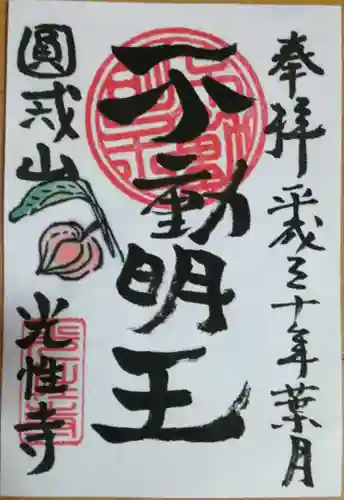 奉拝 平成三十年葉月
不動明王
圓戒山
光性寺